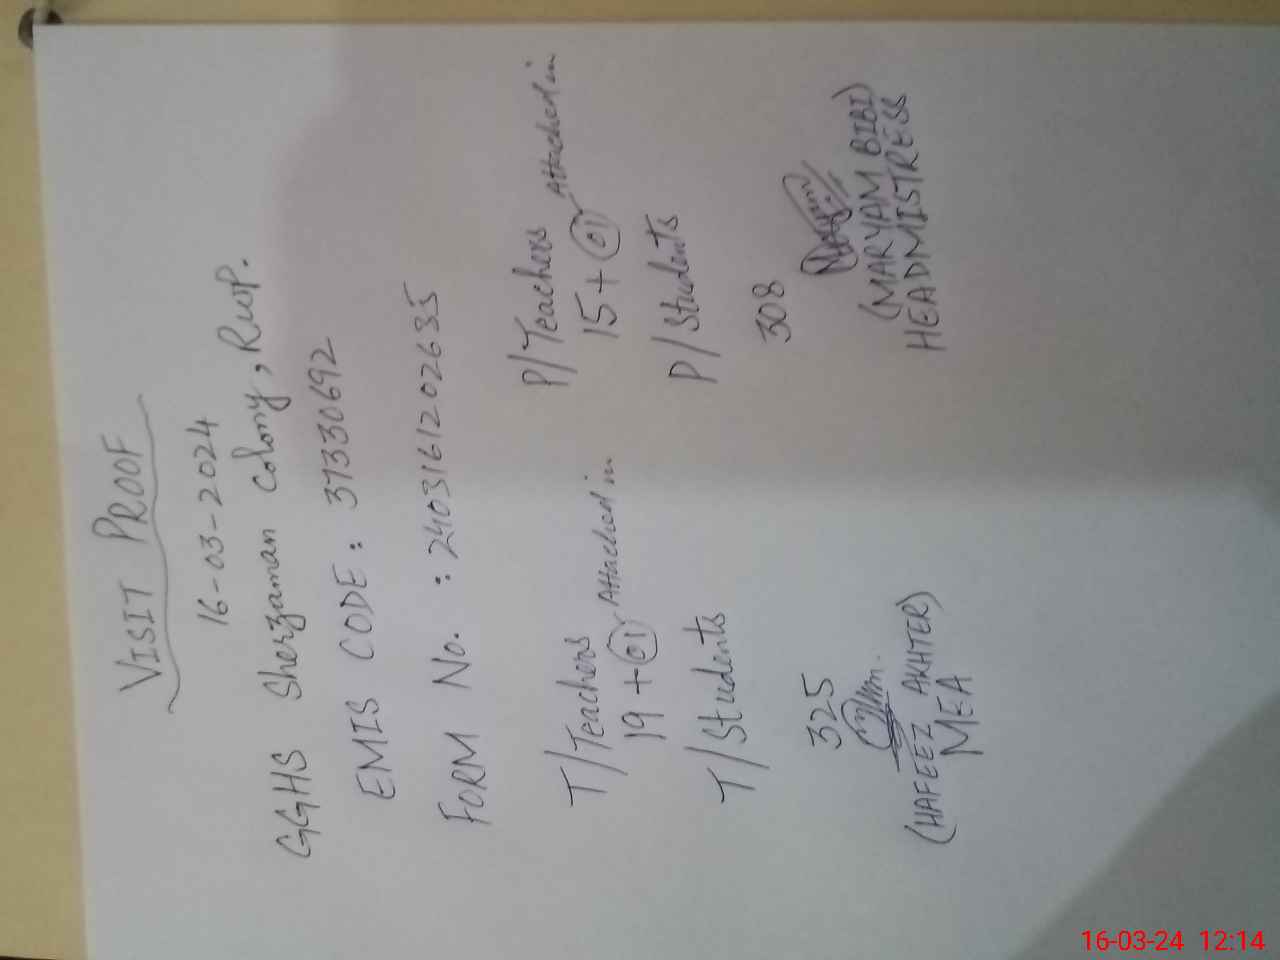 VISIT PROOF
16-03-2024
GGHS Sherzaman Colony, Rwp.
EMIS CODE: 37330692
FORM No. : 2403161202635
T/Teachers P/Teachers
19 + 01 Attached in 15 + 01 Attached in
T/Students P/Students
325 308
(HAFEEZ AKHTER) (MARYAM BIBI)
MEA HEADMISTRESS
16-03-24 12:14